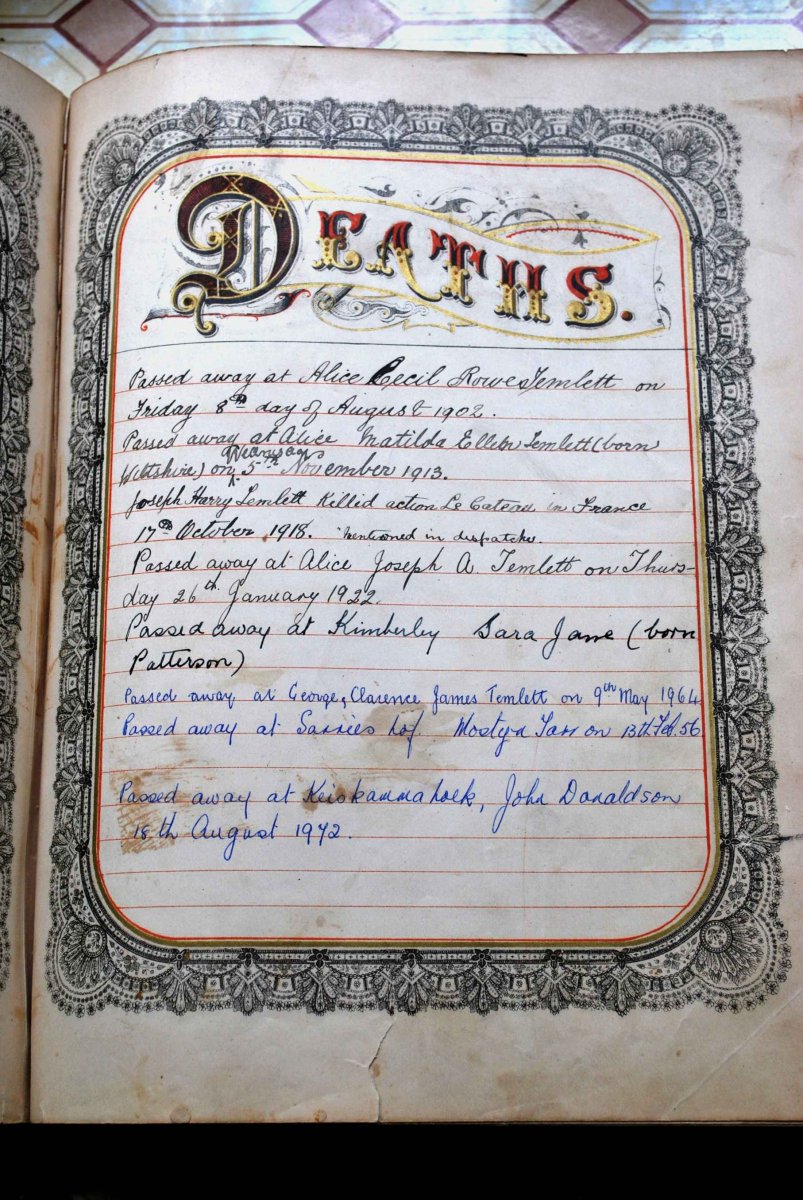 DEATHS.
Passed away at Alice Cecil Rowe Temlett on
Friday 8th day of August 1902.
Passed away at Alice Matilda Ellen Temlett (born
Wiltshire) on 5th November 1913.
Joseph Harry Temlett Killid action Le Cateau in France
17th October 1918. Mentioned in dispatches.
Passed away at Alice Joseph A. Temlett on Thurs-
day 26th January 1922.
Passed away at Kimberley Sara Jane (born
Patterson)
Passed away at George, Clarence James Temlett on 9th May 1964
Passed away at Mostyn on 13th Feb. 56
Passed away at Keiskammahoek, John Donaldson
18th August 1972.